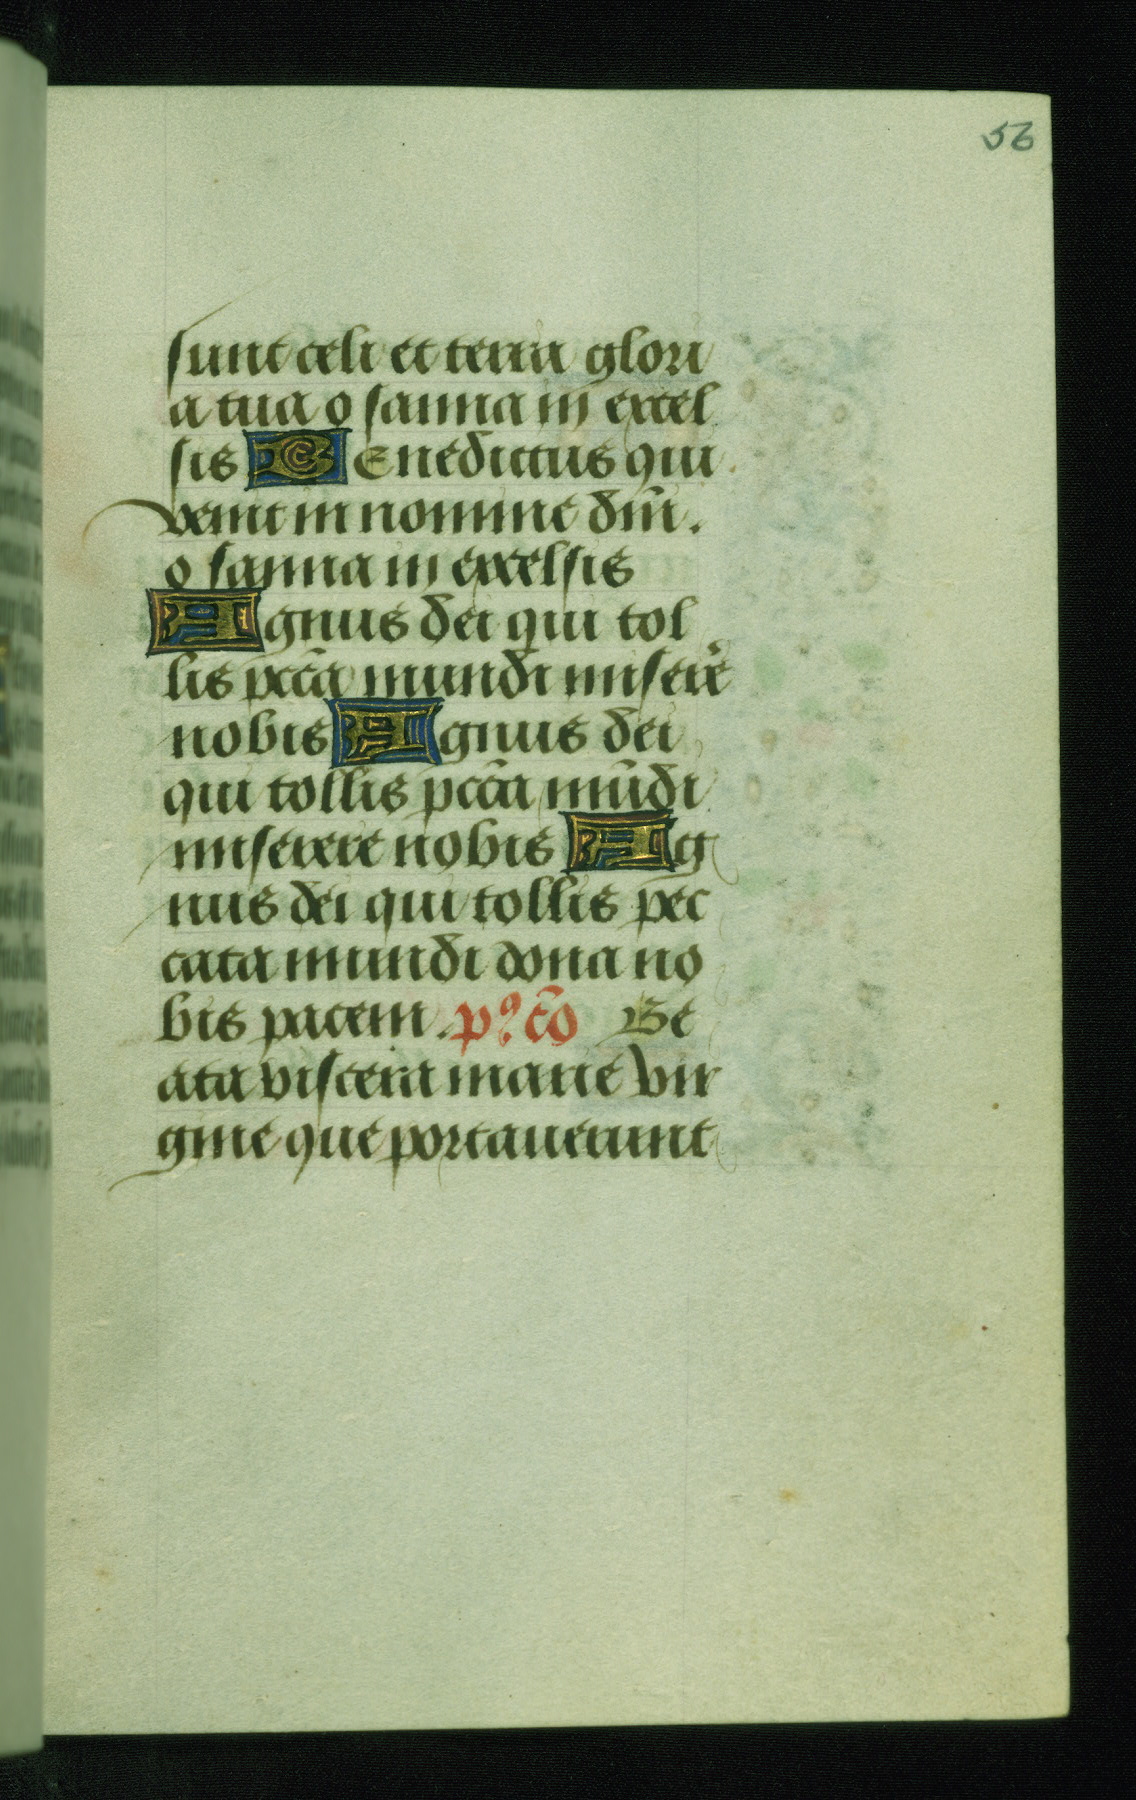 56
sunt celi et terra glori
a tua o sanna in excel
sis Benedictus qui
venit in nomine dñi.
o sanna in excelsis
Agnus dei qui tol
lis pccã mundi miserẽ
nobis Agnus dei
qui tollis pccã mũdi
miserere nobis Ag
nus dei qui tollis pec
cata mundi dona no
bis pacem. pꝰ cõ Be
ata viscera marie vir
gine que portauerunt